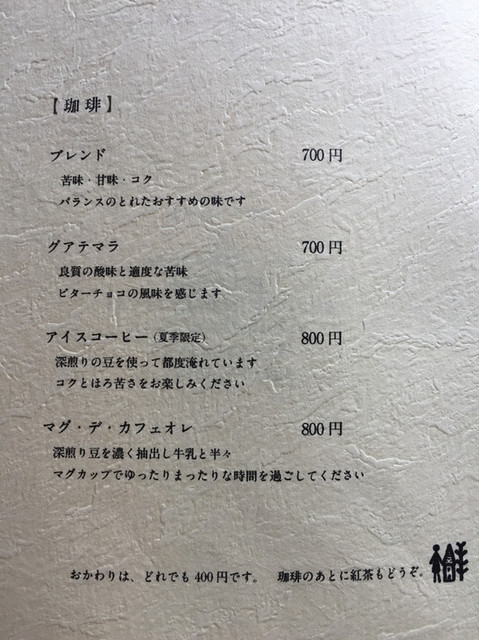 【珈琲】
ブレンド 700円
苦味・甘味・コク
バランスのとれたおすすめの味です
グアテマラ 700円
良質の酸味と適度な苦味
ビターチョコの風味を感じます
アイスコーヒー（夏季限定） 800円
深煎りの豆を使って都度淹れています
コクとほろ苦さをお楽しみください
マグ・デ・カフェオレ 800円
深煎り豆を濃く抽出し牛乳と半々
マグカップでゆったりまったりな時間を過ごしてください
おかわりは、どれでも400円です。 珈琲のあとに紅茶もどうぞ。